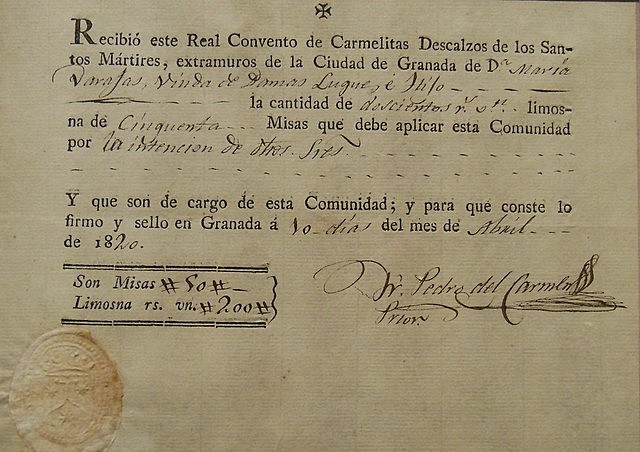 ✠
Recibió este Real Convento de Carmelitas Descalzos de los San-
tos Mártires, extramuros de la Ciudad de Granada de Dª María
Varajas, Viuda de Damas Luque, é Hijo
la cantidad de doscientos rs. vn. limos-
na de Cinquenta Misas que debe aplicar esta Comunidad
por la intencion de dhos. Sres.
Y que son de cargo de esta Comunidad; y para que conste lo
firmo y sello en Granada á 10 dias del mes de Abril
de 1820.
Son Misas #50#
Limosna rs. vn. #200#
Fr. Pedro del Carmen
Prior